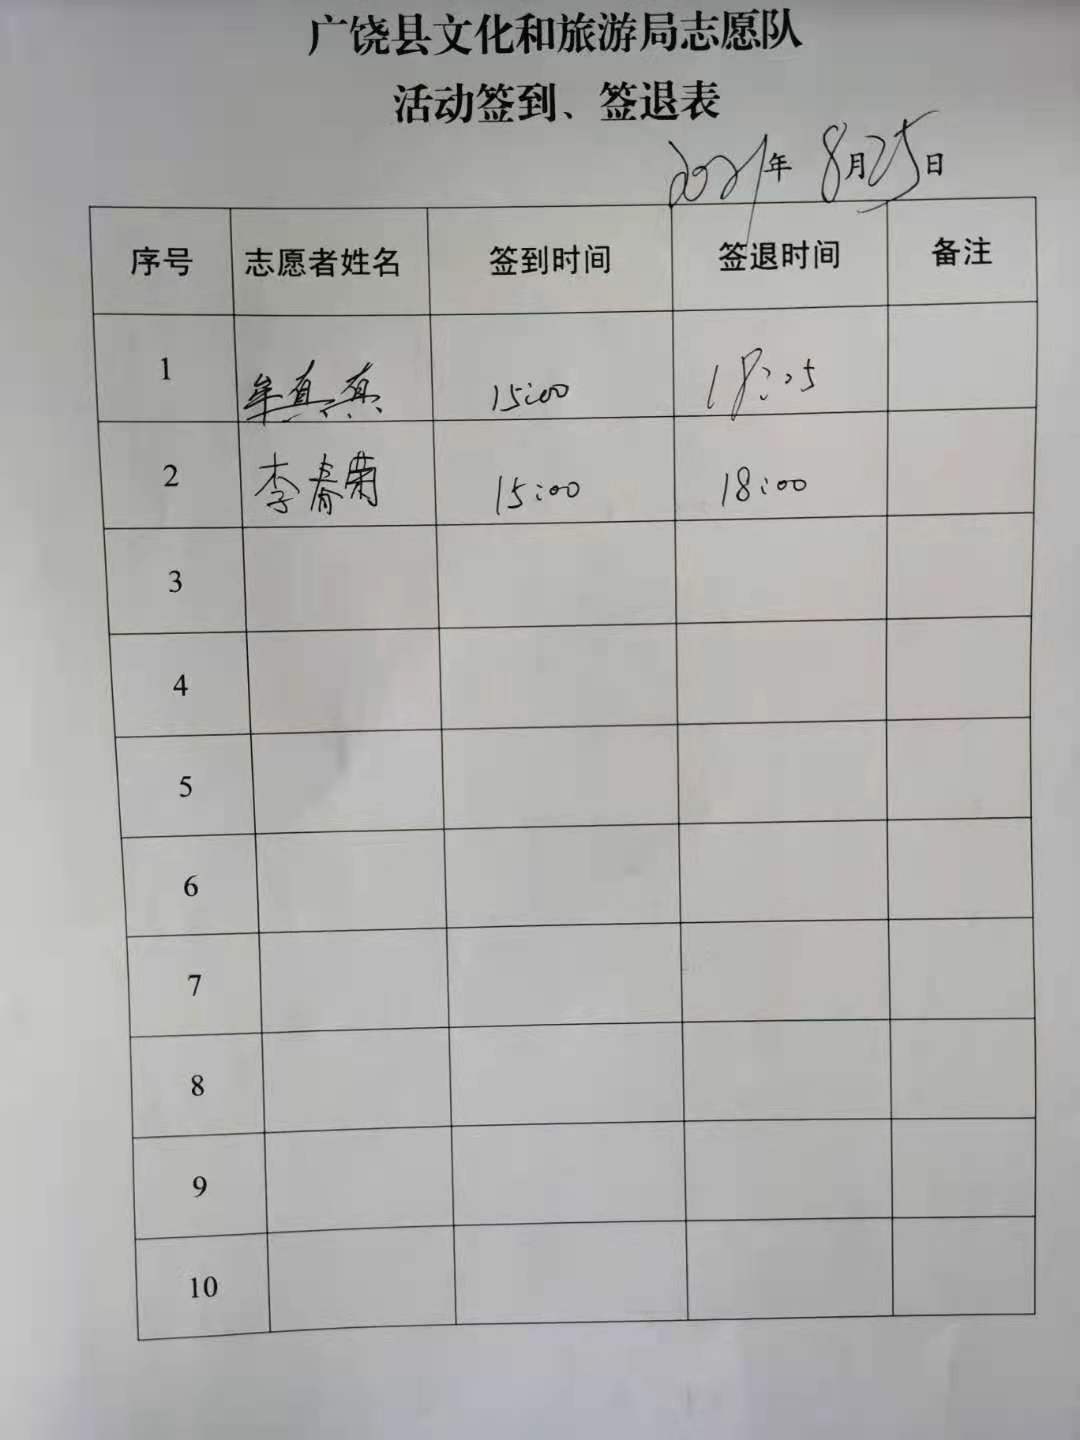 广饶县文化和旅游局志愿队
活动签到、签退表
2021年 8月25日
序号 志愿者姓名 签到时间 签退时间 备注
1 牟真真 15:00 18:05
2 李春菊 15:00 18:00
3
4
5
6
7
8
9
10